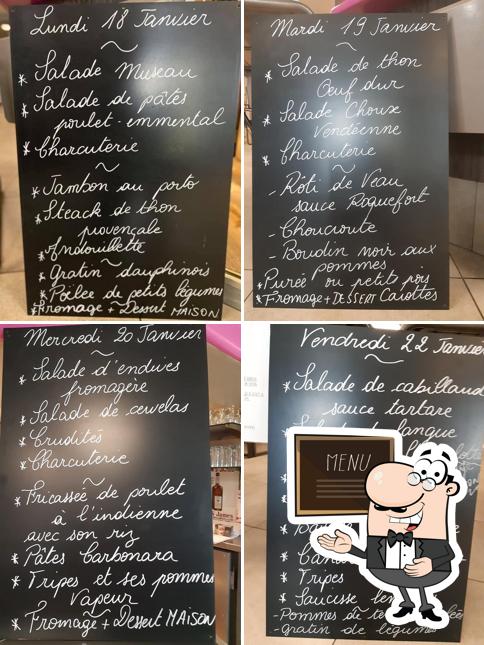 Lundi 18 Janvier
* Salade Museau
* Salade de pâtes
poulet-emmental
* Charcuterie
* Jambon au porto
* Steack de thon
provençale
* Andouillette
* Gratin dauphinois
* Poêlée de petits légumes
* Fromage + Dessert MAISON
Mardi 19 Janvier
* Salade de thon
Œuf dur
* Salade Choux
Vendéenne
* Charcuterie
- Rôti de Veau
sauce Roquefort
- Choucroute
- Boudin noir aux
pommes
* Purée ou petit pois
* Fromage + DESSERT Carottes
Mercredi 20 Janvier
* Salade d'endives
fromagère
* Salade de cervelas
* Crudités
* Charcuterie
* Fricassée de poulet
à l'indienne
avec son riz
* Pâtes Carbonara
* Tripes et ses pommes
Vapeur
* Fromage + Dessert MAISON
Vendredi 22 Janvier
* Salade de cabillaud
sauce tartare
* Salade de langue
MENU
* Tripes
* Saucisse
- Pommes de
- Gratin de légumes